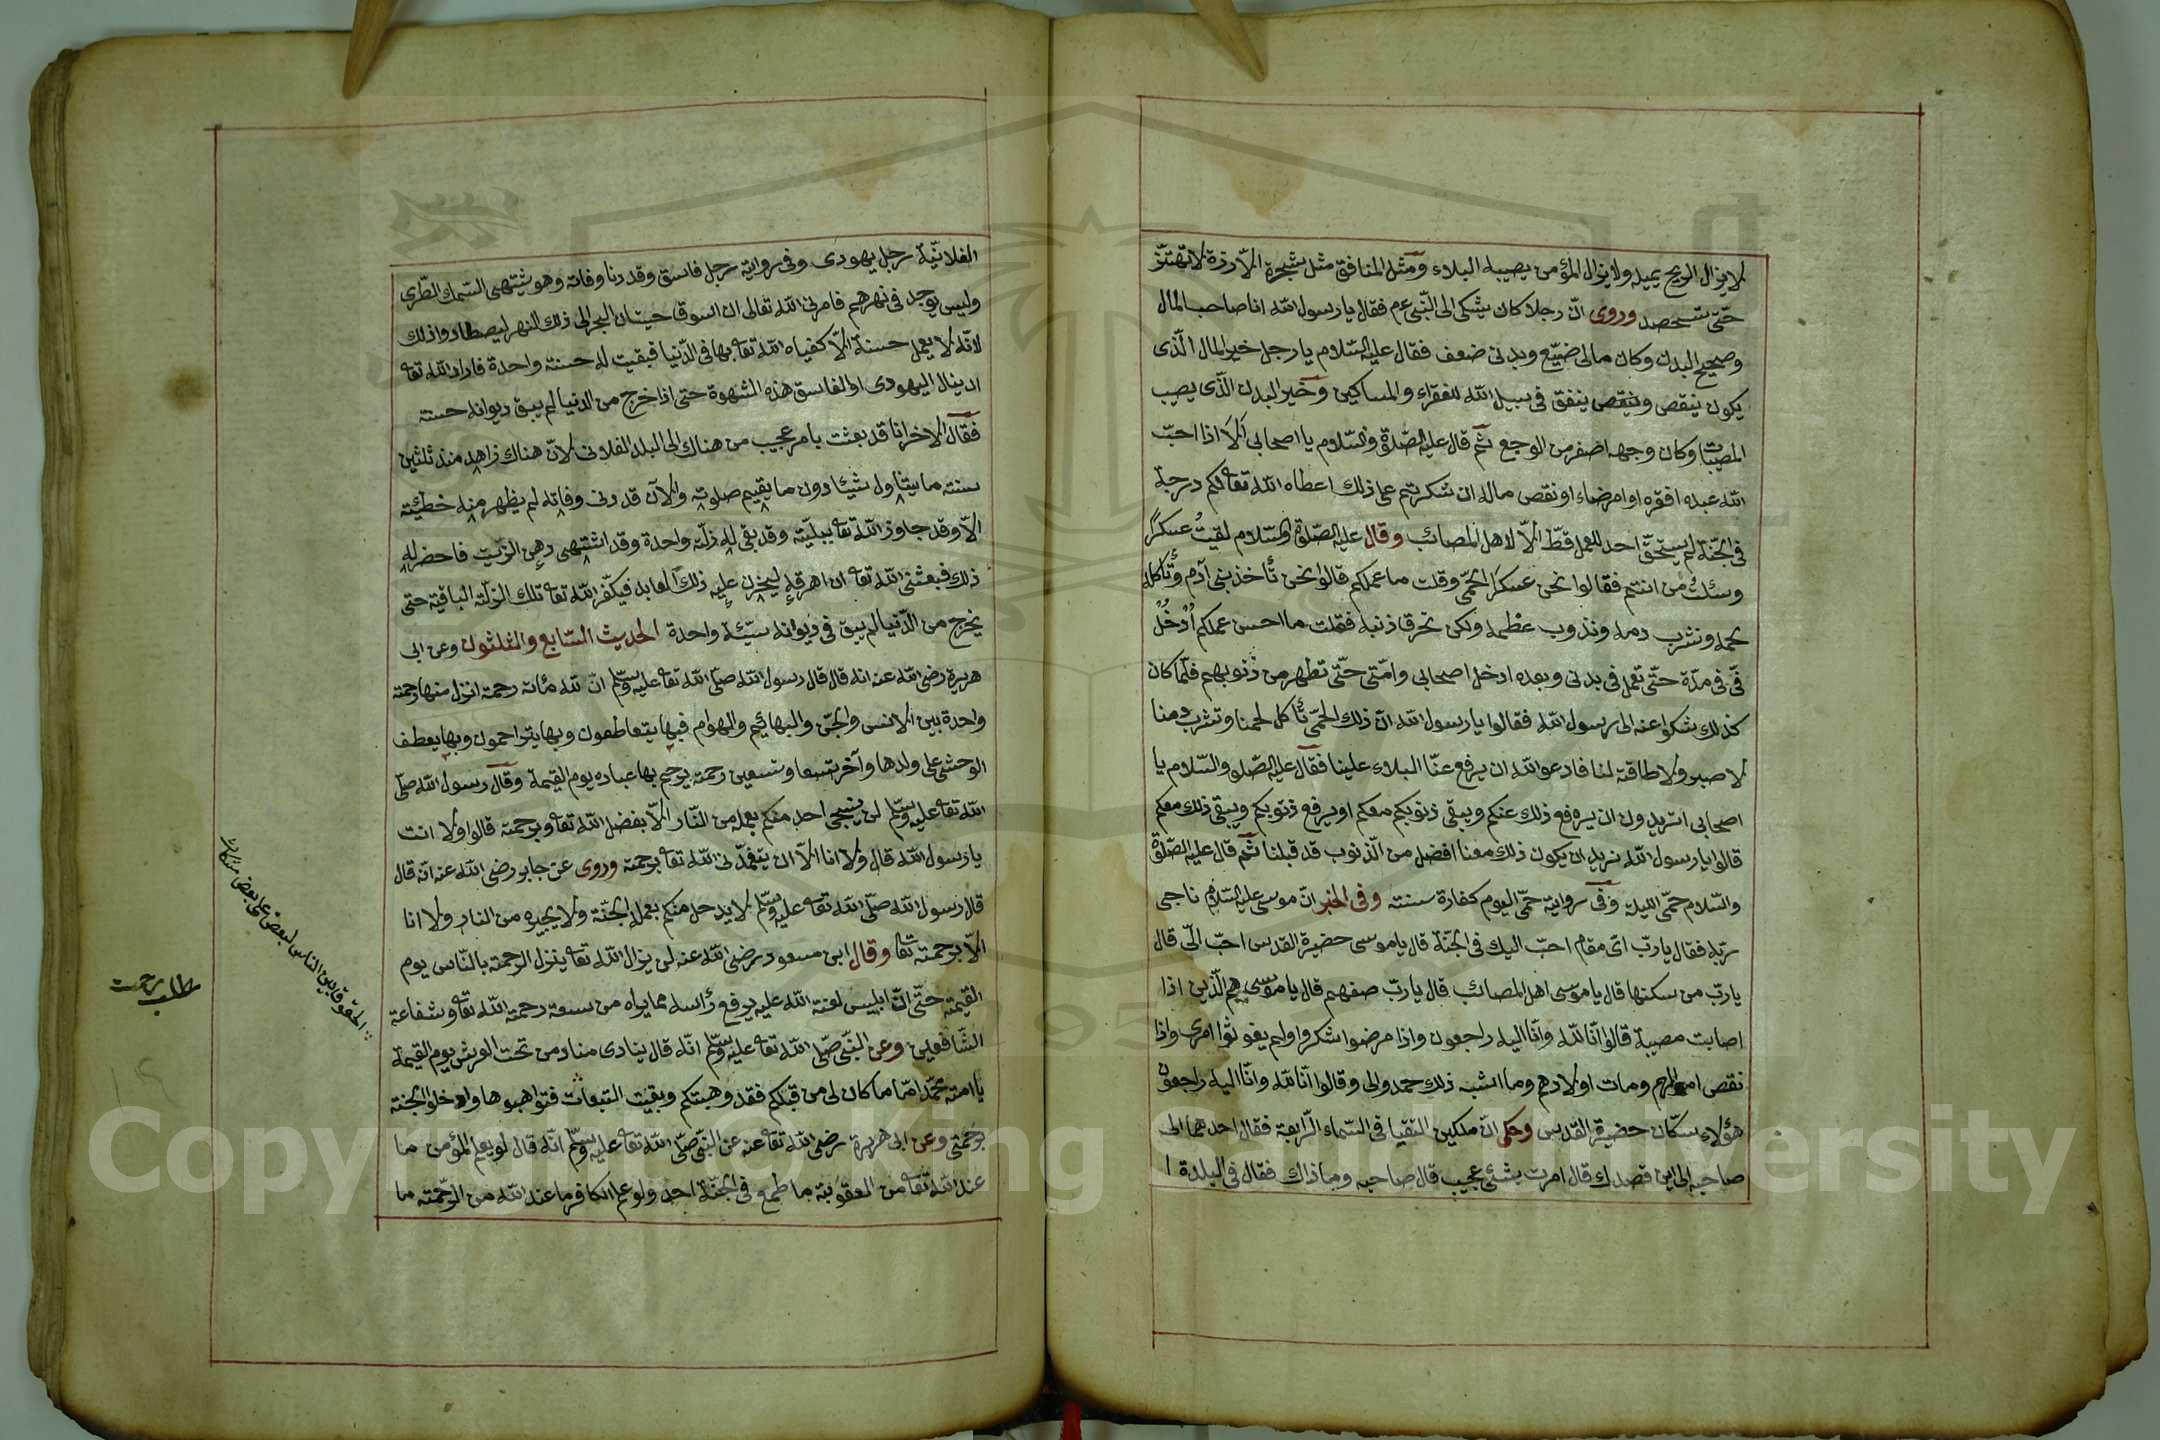 لا يزال الريح يميله ولا يزال المؤمن يصيبه البلاء ومثل المنافق مثل شجرة الارزة لا تهتز
حتى تستحصد وروى ان رجلا كان يشكى الى النبى عم فقال يا رسول الله انا صاحب المال
وصحيح البدن وكان مالى ضيع وبدنى ضعف فقال عليه السلام يا رجل خير المال الذى
يكون ينقص وينقص ينفق فى سبيل الله للفقراء والمساكين وخير البدن الذى يصيب
المصيبات وكان وجهه اصفر من الوجع ثم قال عليه الصلوة والسلام يا اصحابى الا اذا احب
الله عبده افقره او امرضاء او نقص ماله ان شكرتم على ذلك اعطاه الله تعا لكم درجة
فى الجنة لم يستحق احد للعمل قط الا لاهل المصائب وقال عليه الصلوة والسلام لقيت عسكرا
وسئلت من انتم فقالوا نحن عسكر الحمى وقلت ما عملكم قالوا نحن نأخذ بنى آدم ونأكله
لحمه ونشرب دمه ونذوب عظمه ولكن نحرق ذنبه فقلت ما احسن عملكم ادخل
فى فى مدة حتى تعمل فى بدنى وبعده ادخل اصحابى وامتى حتى تطهر من ذنوبهم فلما كان
كذلك شكوا عنه الى رسول الله فقالوا يا رسول الله ان ذلك الحمى تأكل لحمنا وتشرب دمنا
لا صبر ولا طاقة لنا فادعو الله ان يرفع عنا البلاء علينا فقال عليه الصلوة والسلام يا
اصحابى اتريدون ان يرفع ذلك عنكم ويبقى ذنوبكم معكم او يرفع ذنوبكم ويبقى ذلك معكم
قالوا يا رسول الله نريد ان يكون ذلك معنا افضل من الذنوب قد قبلنا ثم قال عليه الصلوة
والسلام حمى الليلة وفى رواية حمى اليوم كفارة سنته وفى الخبر ان موسى عليه السلام ناجى
ربه فقال يا رب اى مقام احب اليك فى الجنة قال يا موسى حضيرة القدس احب الى قال
يا رب من سكنها قال يا موسى اهل المصائب قال يا رب صفهم قال يا موسى هم الذين اذا
اصابت مصيبة قالوا انا لله وانا اليه راجعون واذا مرضوا شكروا ولم يغوثوا امرى واذا
نقص اموالهم ومات اولادهم وما اشبه ذلك حمدوا لى وقالوا انا لله وانا اليه راجعون
هؤلاء سكان حضيرة القدس وحكى ان ملكين التقيا فى السماء الرابعة فقال احدهما الى
صاحبه الى اين قصدك قال امرت بشئ عجيب قال صاحبه وما ذاك فقال فى البلدة ا
الفلانية رجل يهودى وفى رواية رجل فاسق وقد دنا وفاته وهو يشتهى السمك الطرى
وليس يوجد فى نهرهم فامرنى الله تعالى ان اسوق حيتان البحر الى ذلك النهر ليصطاد واذلك
لانه لا يعمل حسنة الا كفياه الله تعا بها فى الدنيا فبقيت له حسنة واحدة فاراد الله تعا
ان ينال اليهودى او الفاسق هذه الشهوة حتى اذا خرج من الدنيا لم يبق ديوانه حسنة
فقال الاخر انا قد بعثت بامر عجيب من هناك الى البلد الفلانى لان هناك زاهد منذ ثلثين
سنة ما يتناول شيئا دون ما يقيم صلوته والآن قد دنى وفاته لم يظهر منه خطيئته
الا وقد جاوز الله تعا ببليته وقد بقى له زلة واحدة وقد اشتهى دهن الزيت فاحضر له
ذلك فبعثنى الله تعا ان اهرقه ليحزن عليه ذلك العابد فيكفر الله تعا تلك الزلة الباقية حتى
يخرج من الدنيا لم يبق فى ديوانه سيئة واحدة الحديث السابع والثلثون وعن ابى
هريرة رضى الله عنه انه قال قال رسول الله صلى الله تعا عليه وسلم ان لله مائة رحمة انزل منها رحمة
واحدة بين الانس والجن والبهائم والهوام فبها يتعاطفون وبها يتراحمون وبها يعطف
الوحش على ولدها وآخر تسعا وتسعين رحمة يرحم بها عباده يوم القيمة وقال رسول الله صلى
الله تعا عليه وسلم لن ينجى احد منكم بعمله من النار الا بفضل الله تعا وبرحمة قالوا ولا انت
يا رسول الله قال ولا انا الا ان يتغمدنى الله تعا برحمة وروى عن جابر رضى الله عنه انه قال
قال رسول الله صلى الله تعا عليه وسلم لا يدخل منكم بعمله الجنة ولا يجيره من النار ولا انا
الا برحمة تعا وقال ابن مسعود رضى الله عنه لن يزال الله تعا ينزل الرحمة بالناس يوم
القيمة حتى ان ابليس لعنة الله عليه يرفع رأسه مما يراه من سعة رحمة الله تعا وشفاعة
الشافعين وعن النبى صلى الله تعا عليه وسلم انه قال ينادى مناد من تحت العرش يوم القيمة
يا امة محمد اما ما كان لى من قبلكم فقد وهبتكم وبقيت التبعات فتواهبوها وادخلوا الجنة
برحمتى وعن ابى هريرة رضى الله تعا عنه عن النبى صلى الله تعا عليه وسلم انه قال لو يعلم المؤمن ما
عند الله تعا من العقوبة ما طمع فى الجنة احد ولو علم الكافر ما عند الله من الرحمة ما
الحقوق بين الناس لبعض على بعض
مطلب رحمت
Copyright © King Saud University